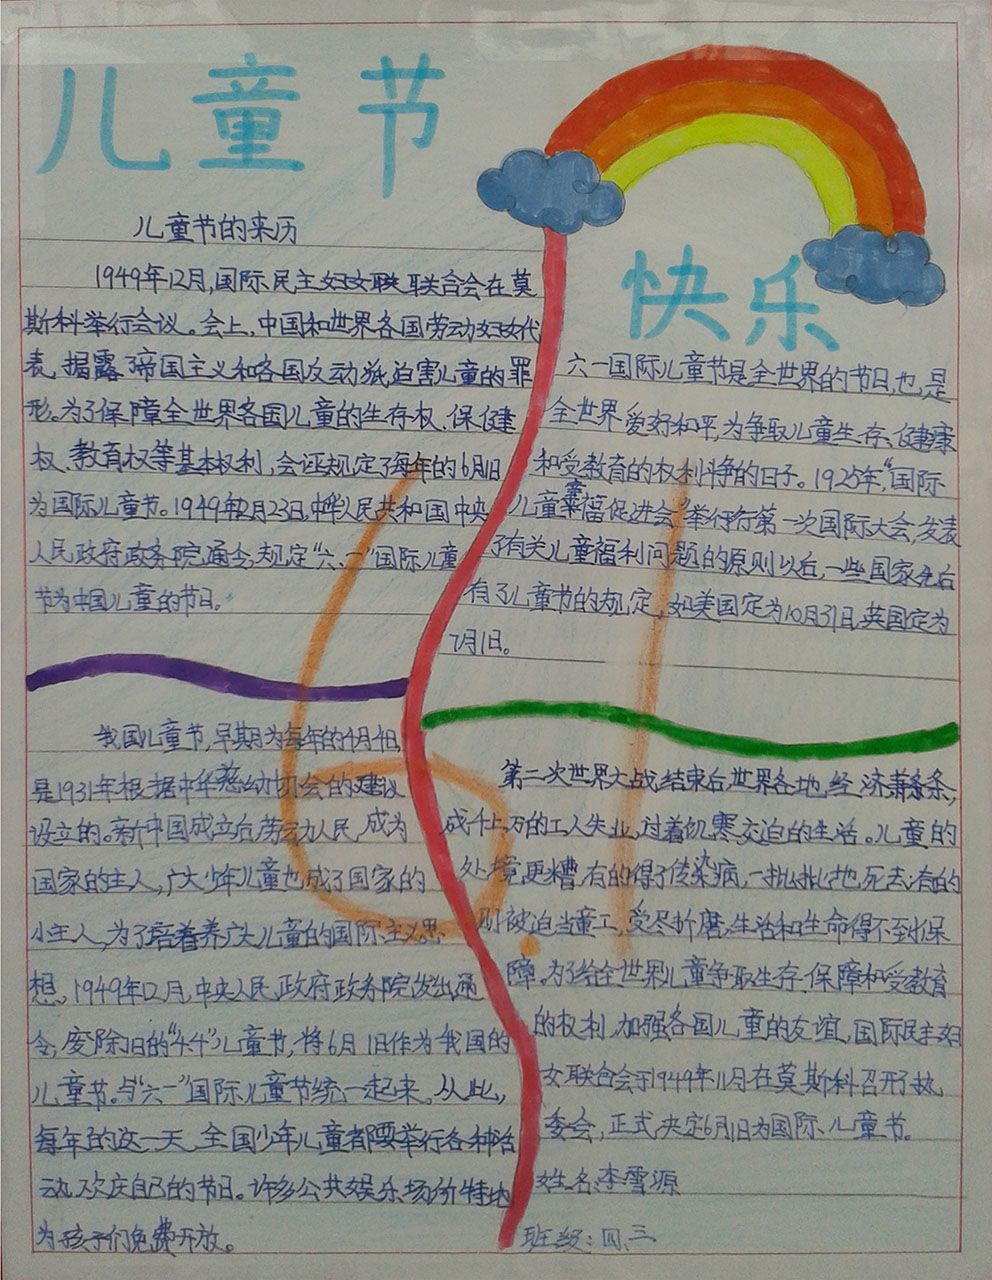 儿童节
儿童节的来历
1949年12月,国际民主妇女联联合会在莫
斯科举行会议。会上,中国和世界各国劳动妇女代
表,揭露帝国主义和各国反动派迫害儿童的罪
形。为了保障全世界各国儿童的生存权、保健
权、教育权等基本权利,会证规定了每年的6月1日
为国际儿童节。1949年12月23日,中华人民共和国中央
人民政府政务院通令,规定“六、一”国际儿童
节为中国儿童的节日。
快乐
六一国际儿童节是全世界的节日,也是
全世界爱好和平,为争取儿童生存、健康
和受教育的权利斗争的日子。1925年,“国际
儿童幸福促进会”举行第一次国际大会,发表
了有关儿童福利问题的原则以后,一些国家先后
有了儿童节的规定,如美国定为10月31日,英国定为
7月1日。
我国儿童节,早期为每年的4月4日,
是1931年根据中华慈幼协会的建议
设立的。新中国成立后,劳动人民,成为
国家的主人,广大少年儿童也成了国家的
小主人,为了培养广大儿童的国际主义思
想。1949年12月,中央人民政府政务院发出通
令,废除旧的“4.4”儿童节,将6月1日作为我国的
儿童节。与“六一”国际儿童节统一起来。从此,
每年的这一天,全国少年儿童都要举行各种活
动,欢庆自己的节日。许多公共娱乐场所特地
为孩子们免费开放。
第二次世界大战结束后,世界各地,经济萧条,
成千上万的工人失业,过着饥寒交迫的生活。儿童的
处境更糟,有的得了传染病,一批批地死去;有的
则被迫当童工,受尽折磨,生活和生命得不到保
障。为了给全世界儿童争取生存、保障和受教育
的权利,加强各国儿童的友谊,国际民主妇
女联合会于1949年11月在莫斯科召开了执
委会,正式决定6月1日为国际儿童节。
姓名:李雪源
班级:四、三
6.1